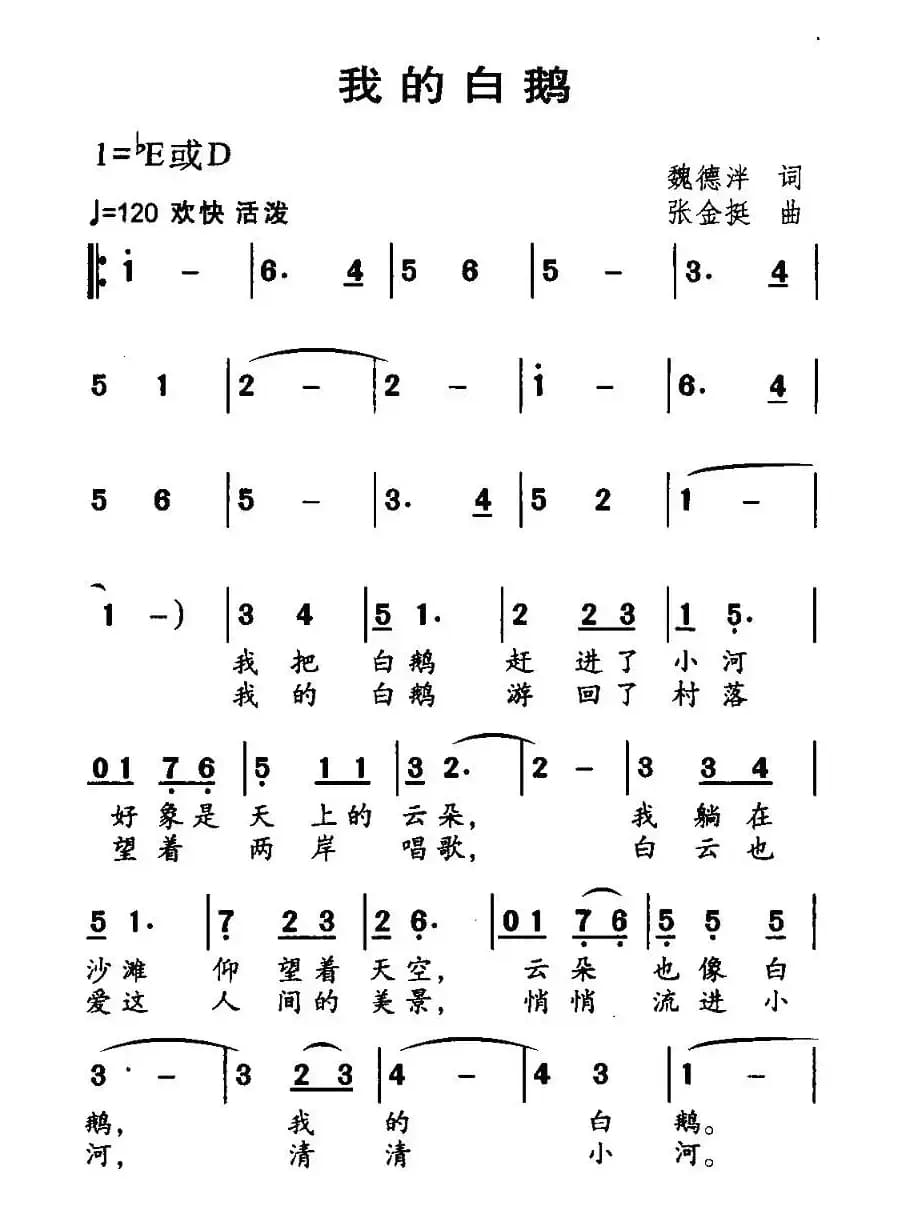 我的白鹅
1=♭E或D
魏德泮 词
♩=120 欢快 活泼
张金挺 曲
𝄆 i - | 6. 4 | 5 6 | 5 - | 3. 4 |
5 1 | 2 - | 2 - | i - | 6. 4 |
5 6 | 5 - | 3. 4 | 5 2 | 1 - |
1 -) | 3 4 | 5 1. | 2 2 3 | 1 5. |
我 把 白 鹅 赶 进 了 小 河
我 的 白 鹅 游 回 了 村 落
0 1 7 6 | 5 1 1 | 3 2. | 2 - | 3 3 4 |
好 象 是 天 上 的 云 朵, 我 躺 在
望 着 两 岸 唱 歌, 白 云 也
5 1. | 7 2 3 | 2 6. | 0 1 7 6 | 5 5 5 |
沙 滩 仰 望 着 天 空, 云 朵 也 像 白
爱 这 人 间 的 美 景, 悄 悄 流 进 小
3 - | 3 2 3 | 4 - | 4 3 | 1 - |
鹅, 我 的 白 鹅。
河, 清 清 小 河。